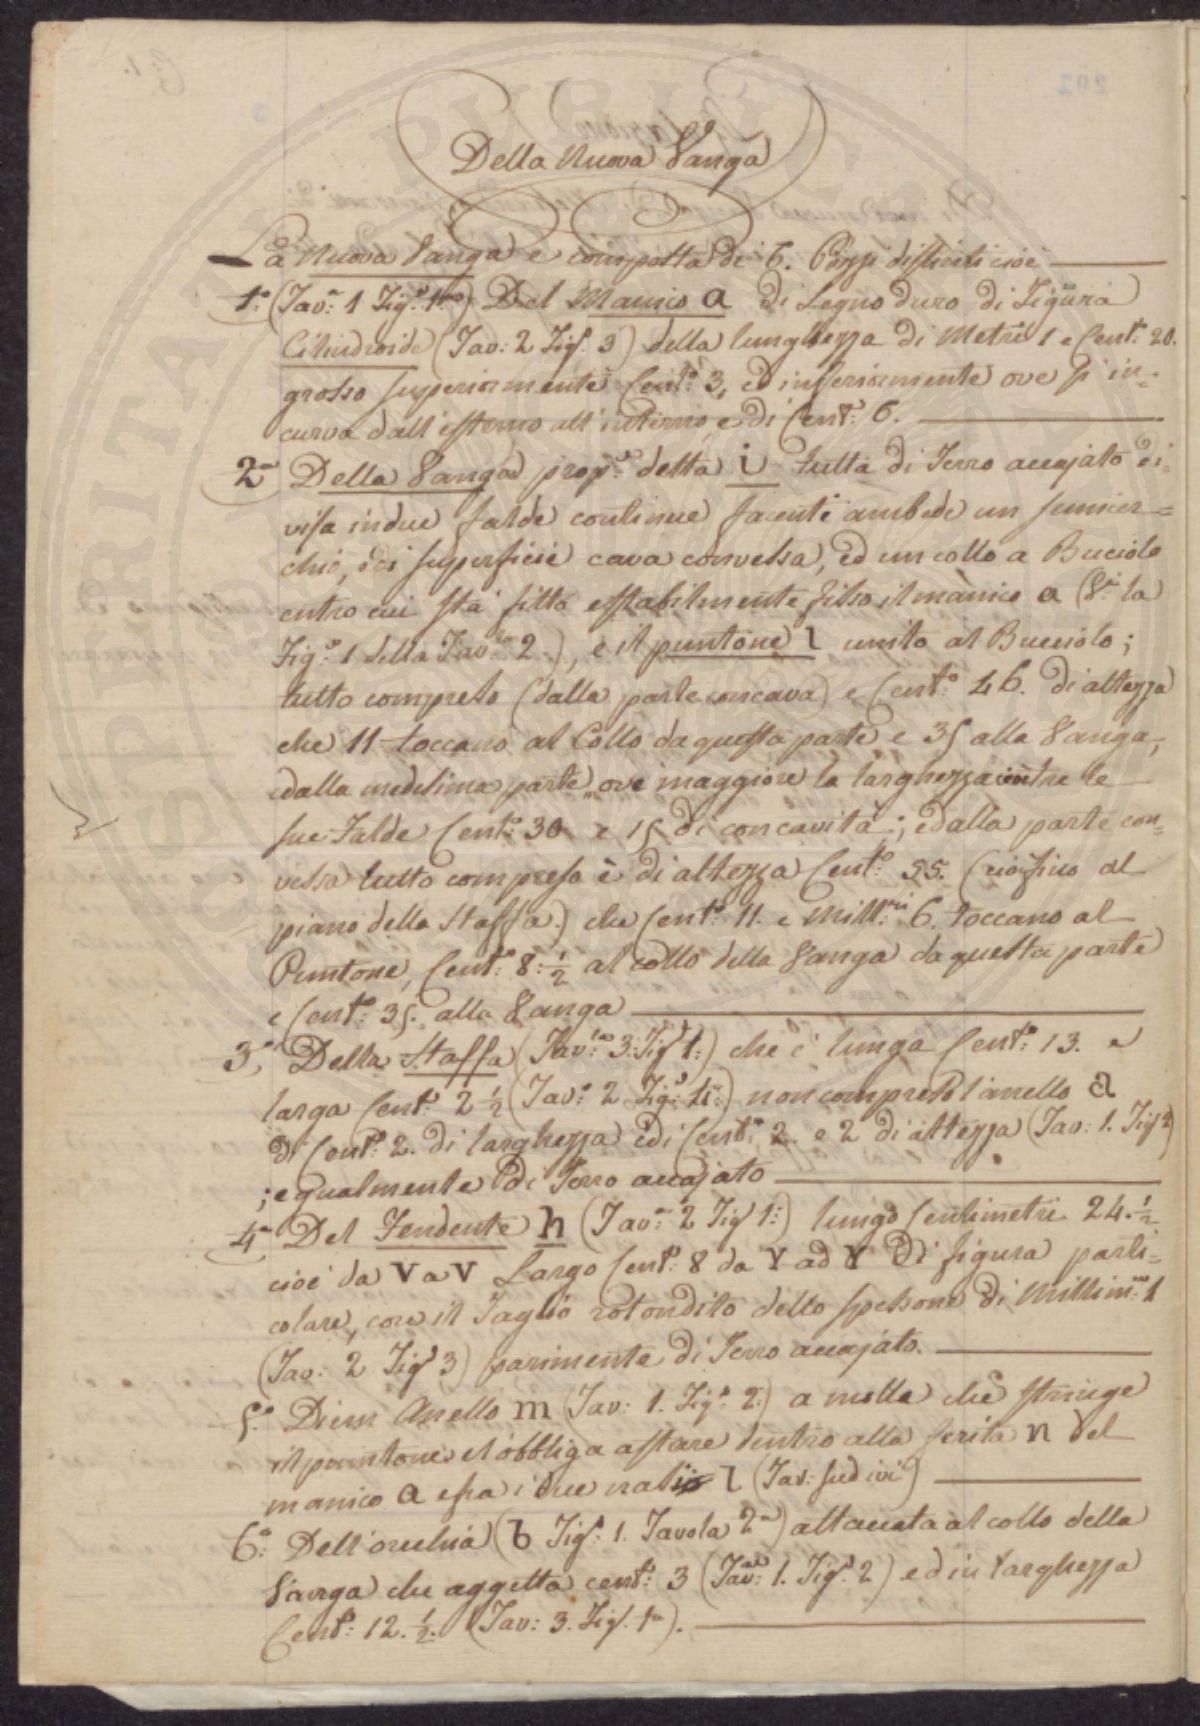 Della Nuova Vanga
La Nuova Vanga è composta di 6. Pezzi distinti cioè
1.º (Tav.ª 1 Fig.ª 1.ma) Del Manico a di Legno duro di Figura
Cilindroide (Tav: 2 Fig. 3) della lunghezza di Metri 1 e Cent.i 20.
grosso superiormente Cent.i 3, ed inferiormente ove s'in-
curva dall'esterno all'interno, e di Cent.i 6.
2º Della Vanga prop.te detta i tutta di Ferro accajato di-
visa in due falde continue facenti ambede un semicer=
chio, di superficie cava convessa, ed un collo a Buciolo
entro cui stà fitto estabilmente fisso il manico a (V.i la
Fig.ª 1 della Tav.la 2.), e il puntone l unito al Bucciolo;
tutto compreso (dalla parte concava) e Cent.i 46. di altezza
che 11 toccano al Collo da questa parte e 35 alla Vanga,
e dalla medesima parte, ov'è maggiore la larghezza entre le
sue Falde Cent.i 30 e 15 di concavità; e dalla parte con=
vessa tutto compreso è di altezza Cent.i 55. (cioè fino al
piano della Staffa.) che Cent.i 11. e Mill.tri 6. toccano al
Puntone, Cent.i 8.½ al collo della Vanga da questa parte
e Cent.i 35. alla Vanga
3º, Della Staffa (Tav.la 3. Fig. 1.) che è lunga Cent.i 13. e
larga Cent.i 2½ (Tav.ª 2 Fig. 4.) non compreso l'anello a
di Cent.i 2. di larghezza e di Cent.i 2. e 2 di altezza (Tav: 1. Fig 2)
; egualmente di Ferro accajato
4º Del Fendente h (Tav.ª 2 Fig. 1.) lungo Centimetri 24.½
cioè da V a V Largo Cent.i 8 da Y ad Y di figura parti=
colare, con il Taglio rotondito dello spessone di Millim.tro 1
(Tav: 2 Fig. 3) parimente di Ferro accajato.
5º. Di un Anello m (Tav: 1. Fig.ª 2.) a molla che stringe
il puntone e l'obbliga astare dentro alla ferita n del
manico a e fra i due l (Tav: sud ivi)
6º. Dell'orechia (b Fig.ª 1. Tavola 2ª) attaccata al collo della
Vanga che aggetta cent.i 3 (Tav: 1. Fig. 2) ed in larghezza
Cent.i 12.½. (Tav: 3. Fig. 1ª).